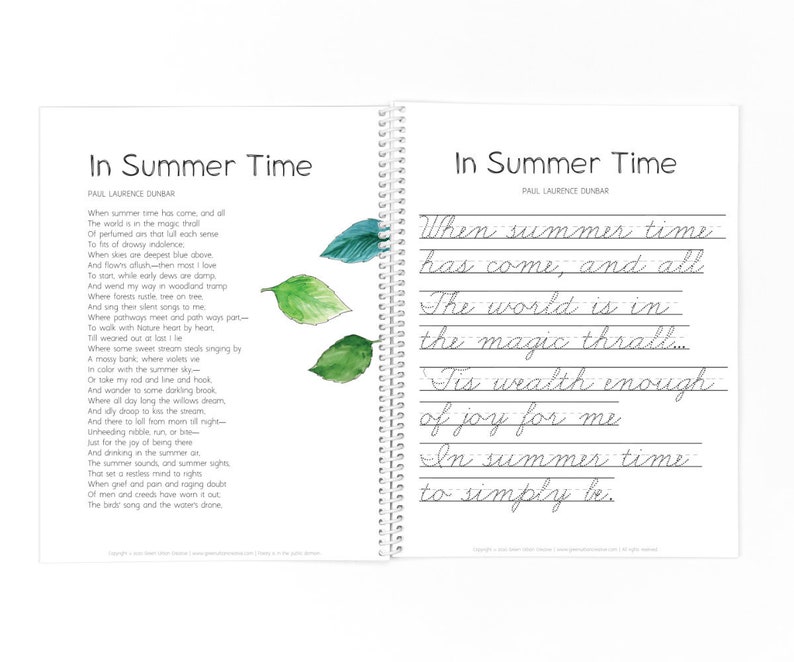 In Summer Time
PAUL LAURENCE DUNBAR
When summer time has come, and all
The world is in the magic thrall
Of perfumed airs that lull each sense
To fits of drowsy indolence;
When skies are deepest blue above,
And flow'rs aflush,—then most I love
To start, while early dews are damp,
And wend my way in woodland tramp
Where forests rustle, tree on tree,
And sing their silent songs to me;
Where pathways meet and path ways part,—
To walk with Nature heart by heart,
Till wearied out at last I lie
Where some sweet stream steals singing by
A mossy bank; where violets vie
In color with the summer sky,—
Or take my rod and line and hook,
And wander to some darkling brook,
Where all day long the willows dream,
And idly droop to kiss the stream,
And there to loll from morn till night—
Unheeding nibble, run, or bite—
Just for the joy of being there
And drinking in the summer air,
The summer sounds, and summer sights,
That set a restless mind to rights
When grief and pain and raging doubt
Of men and creeds have worn it out;
The birds' song and the water's drone,
Copyright © 2020 Green Urban Creative | www.greenurbancreative.com | Poetry is in the public domain.
In Summer Time
PAUL LAURENCE DUNBAR
When summer time
has come, and all
The world is in
the magic thrall...
'Tis wealth enough
of joy for me
In summer time
to simply be.
Copyright © 2020 Green Urban Creative | www.greenurbancreative.com | All rights reserved.